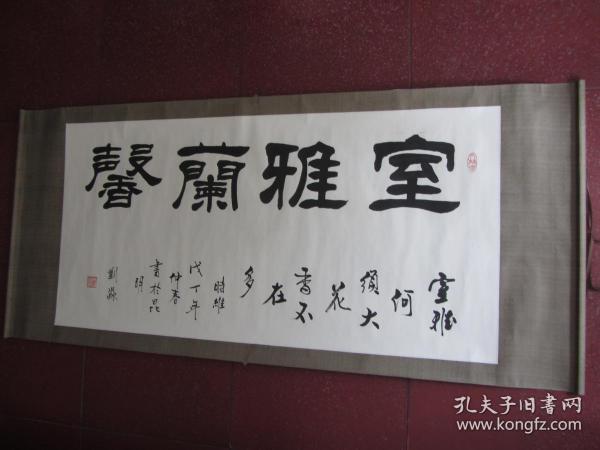 室雅蘭馨
室雅
何
須大
花
香不
在
多
時維
戊丁年
仲春
書於昆
明
劉
孔夫子旧書网
www.kongfz.com